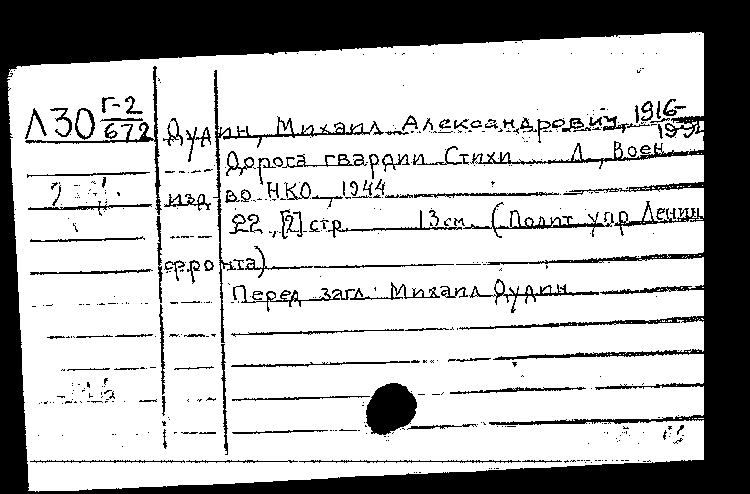 Л30 Г-2
672
Дудин, Михаил Александрович, 1916-
1992
Дорога гвардии Стихи Л., Воен.
изд во НКО, 1944
22, [2] стр 13 см. (Полит упр Ленин
фронта)
Перед загл: Михаил Дудин